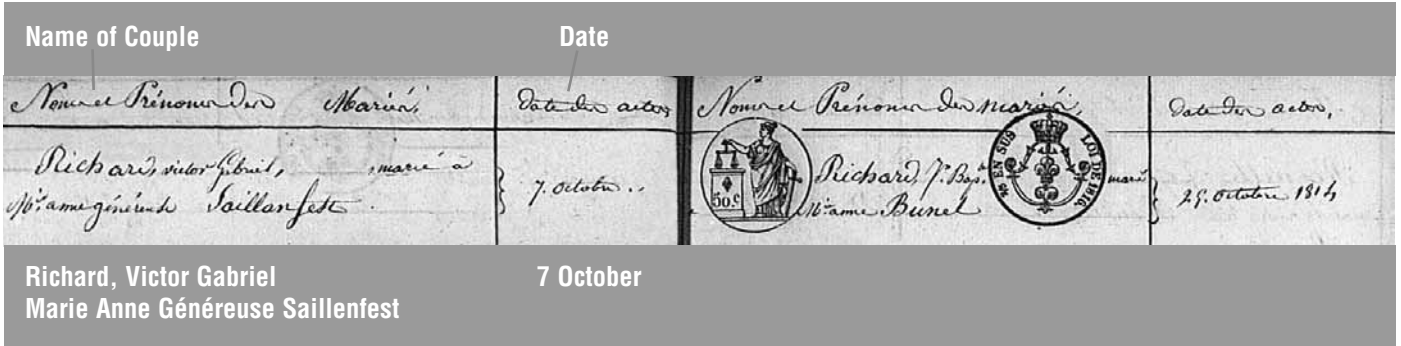 Name of Couple
Date
Noms et Prénoms des Mariés,
date des actes
Noms et Prénoms des mariés,
date des actes,
Richard, victor Gabriel, marié à
Mie. anne généreuse Saillanfest
7. Octobre..
Richard, Jn. Bapt. marié
Mie anne Bunel
50.c
EN SUS
LOI DE 1816.
25. Octobre 1814
Richard, Victor Gabriel
Marie Anne Généreuse Saillenfest
7 October